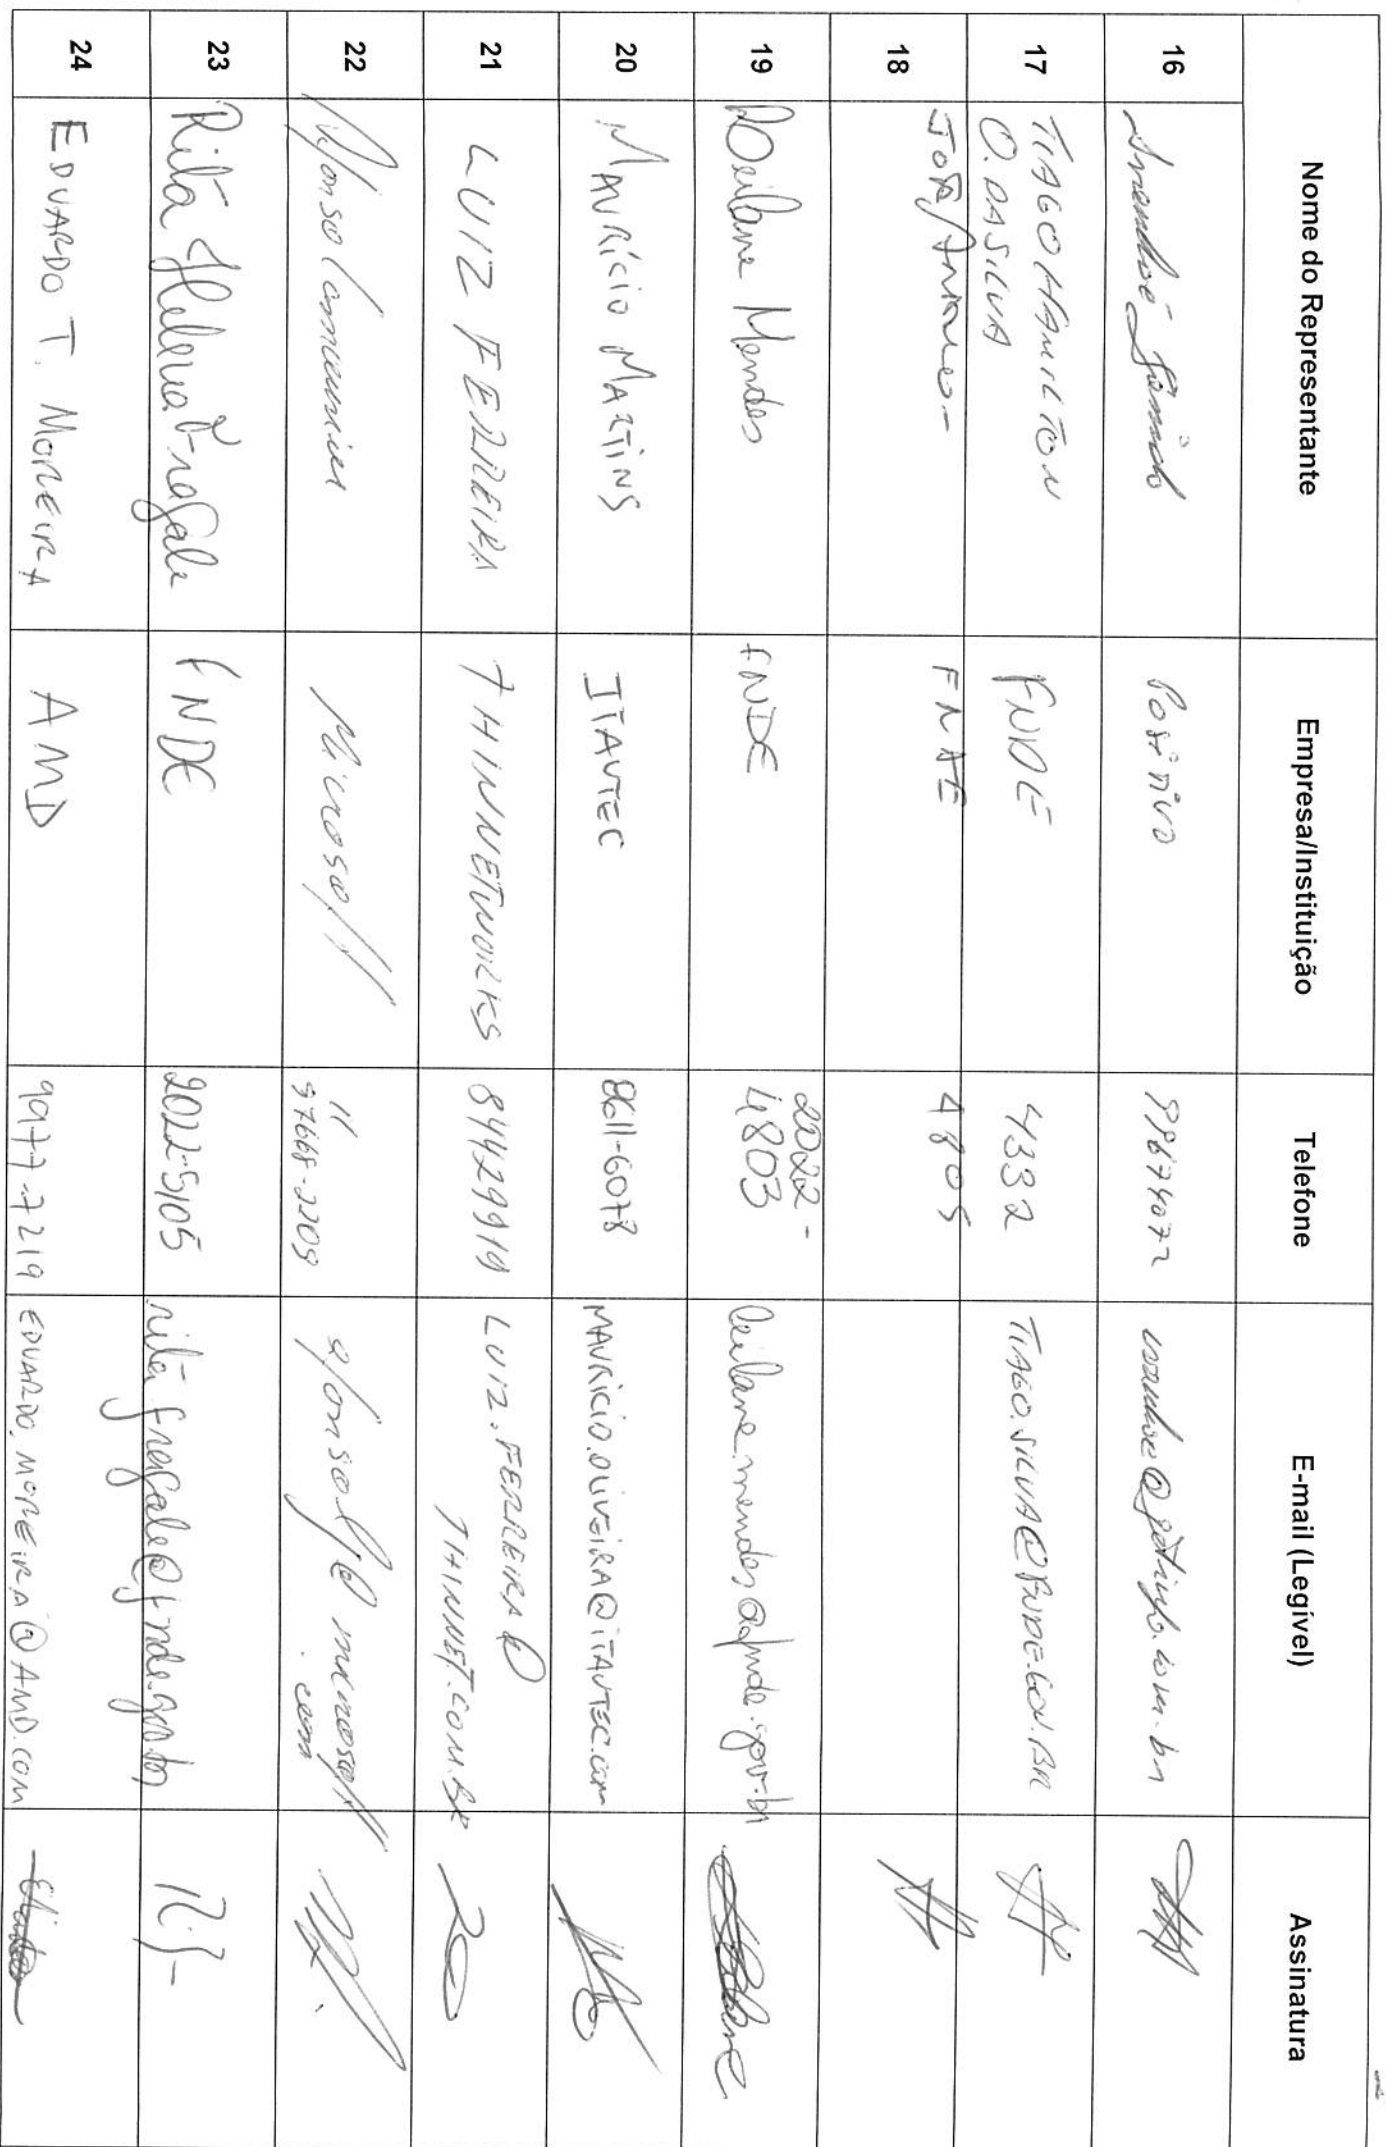 Nome do Representante Empresa/Instituição Telefone E-mail (Legível) Assinatura
16 Positivo 99674072
17 TIAGO HAMILTON
O. DA SILVA FNDE 4332 TIAGO.SILVA@FNDE.GOV.BR
18 4805
19 Deilane Mendes FNDE 2022-
4803 deilane.mendes@fnde.gov.br
20 MAURÍCIO MARTINS ITAUTEC 8611-6078 MAURICIO.OLIVEIRA@ITAUTEC.com
21 LUIZ FERREIRA THINNETWORKS 84429919 LUIZ.FERREIRA@
THINNET.COM.BR
22 Afonso Microsoft 11
97668-2209 @microsoft
.com
23 Rita Helena Fragale FNDE 2022-5105 rita.fragale@fnde.gov.br
24 EDUARDO T. MOREIRA AMD 9977-7219 EDUARDO.MOREIRA@AMD.COM